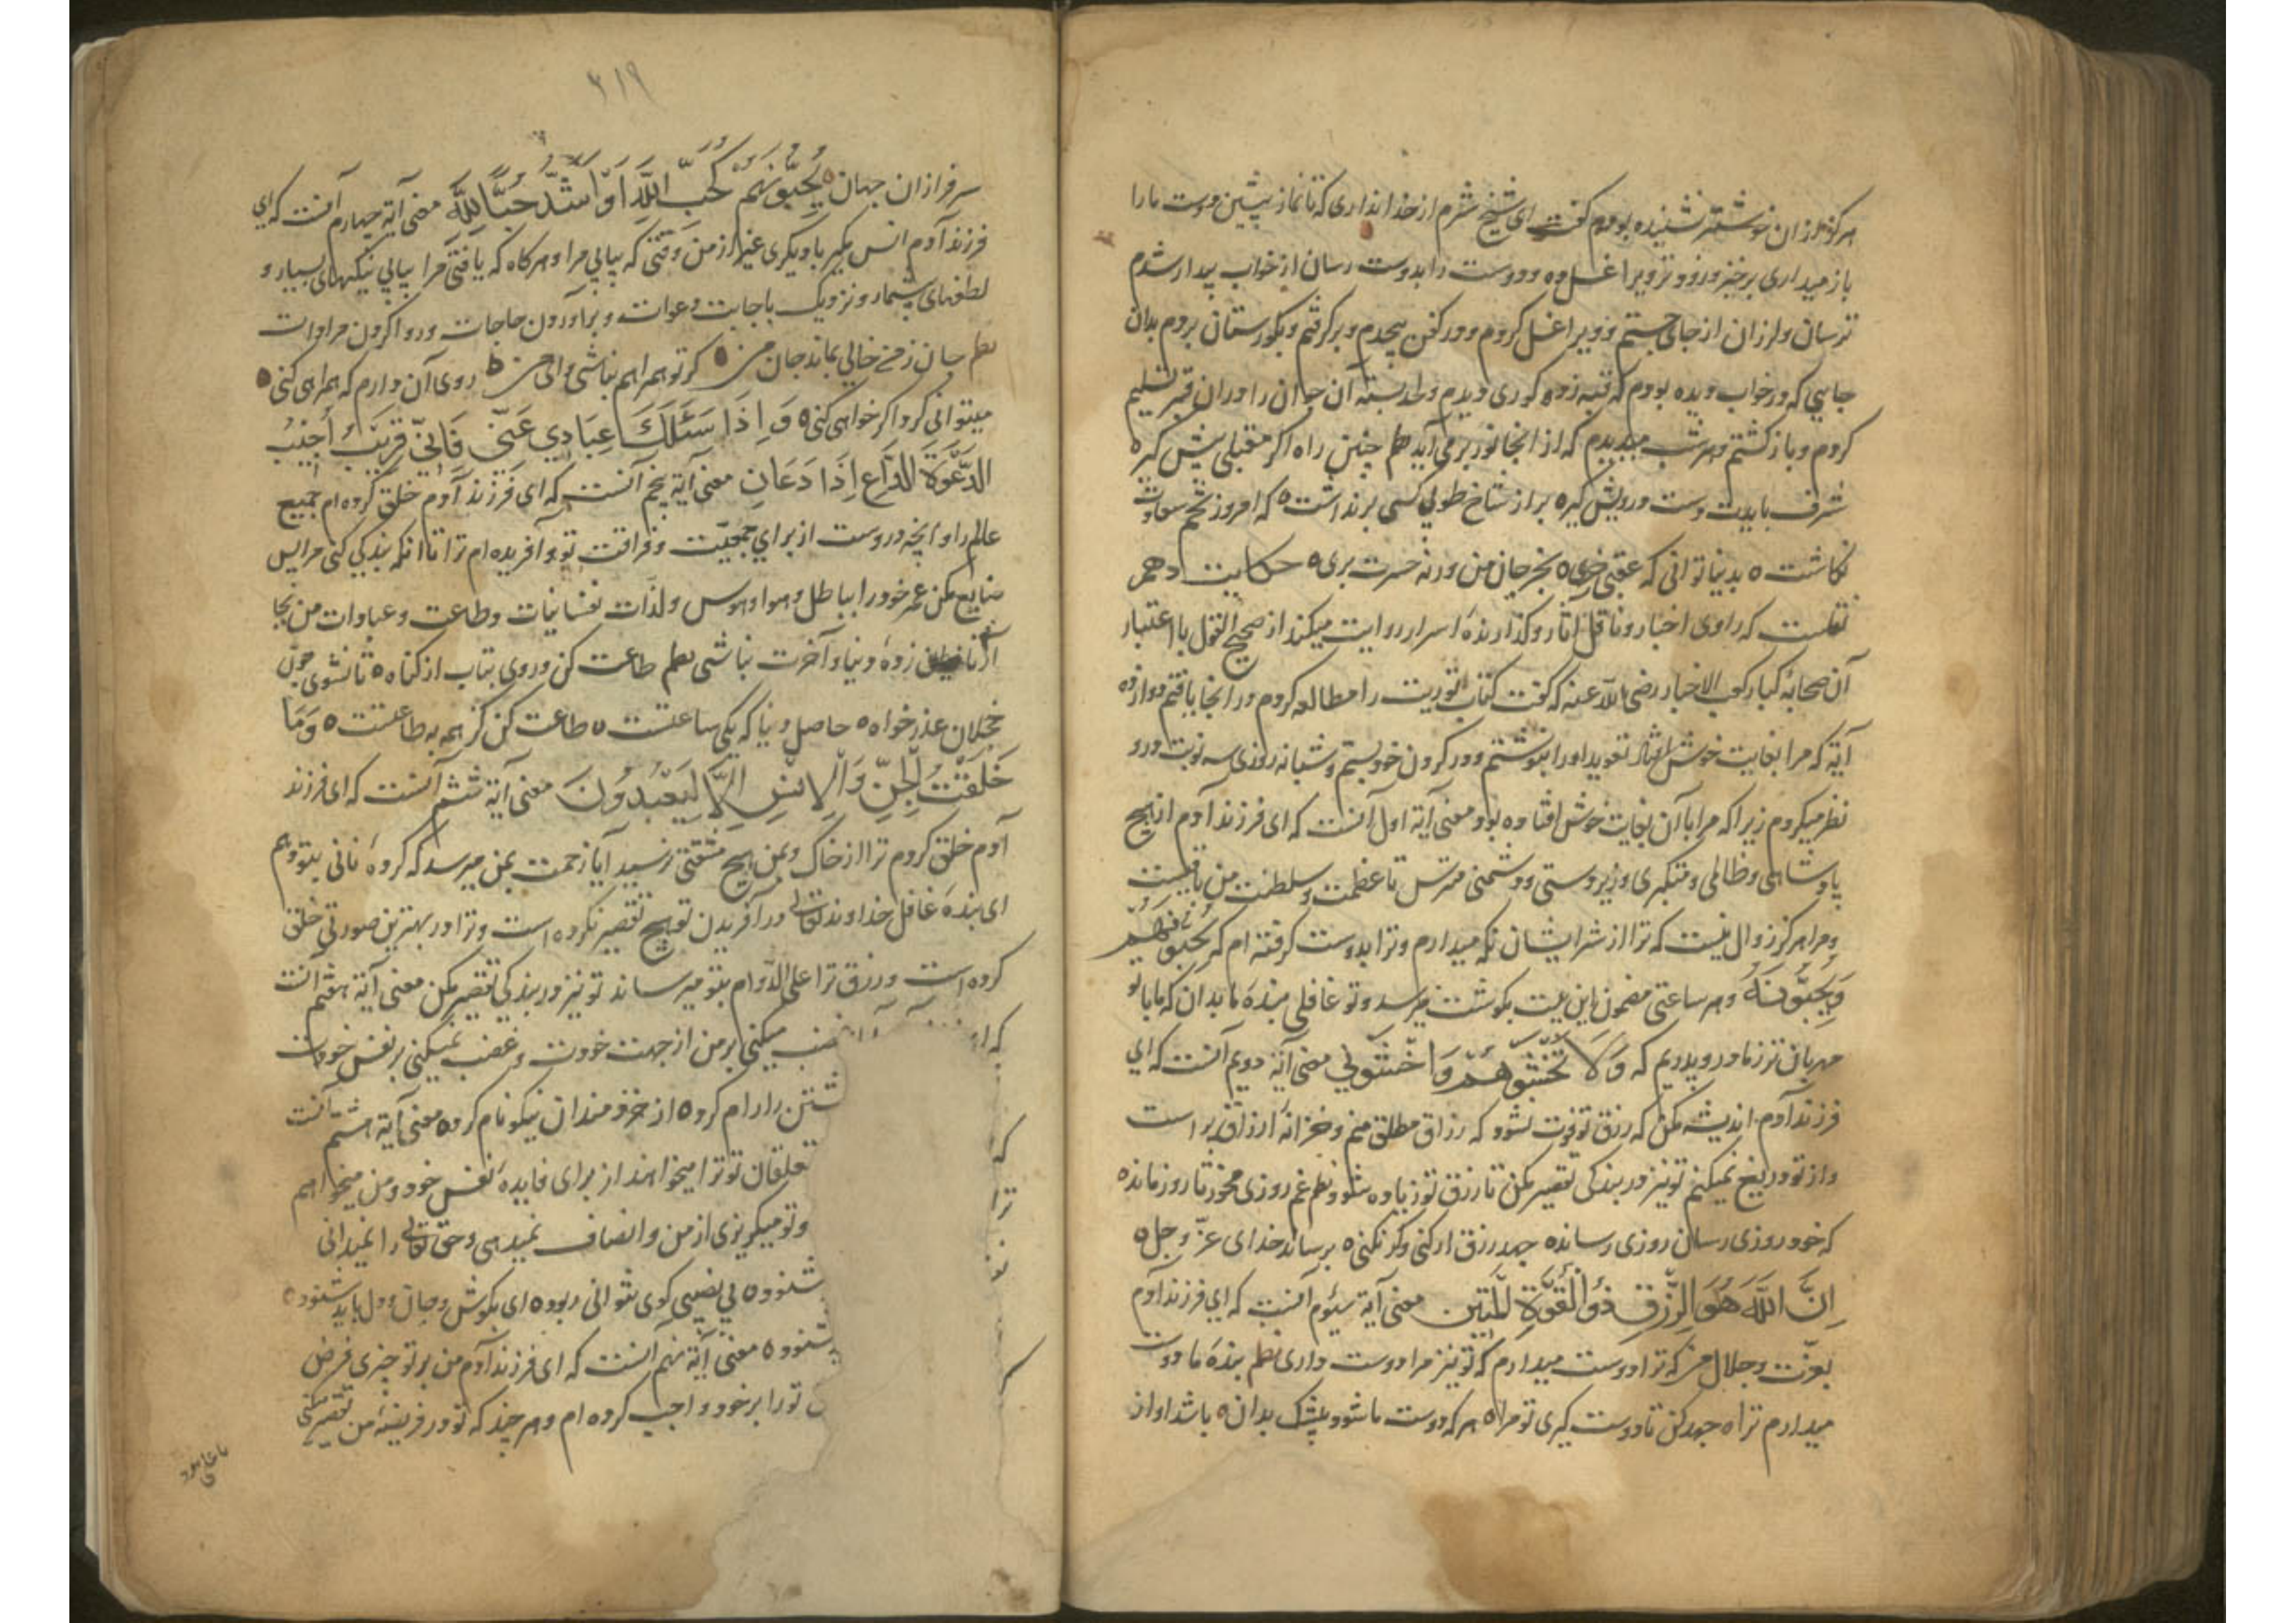 هرگز از ان خوشتر نشنیده بودم گفت ای شیخ شرم از خدا نداری که تا نماز پیشین دوست ما را
باز میداری برخیز و زود تر ویرا غسل ده و دوست را بدوست رسان از خواب بیدار شدم
ترسان و لرزان از جای جستم و ویرا غسل کردم و در کفن پیچدم و برگرفتم و بگورستان بردم بدان
جایی که در خواب دیده بودم که قبه زده گوری دیدم و لحد بسته آن جوان را در ان قبر تسلیم
کردم و بازگشتم و هر شب میدیدم که از انجا نور برمی آید نظم چنین راه اگر مقبلی پیش گیر ه
شرف بایدت دست درویش گیر ه بر از شاخ طوبی کسی برنداشت ه که امروز تخم سعادت
نکاشت ه بدنیا توانی که عقبی خری ه بخر جان من ورنه حسرت بری ه حکایت دهم
نقلست که راوی اخبار و ناقل آثار و گذارنده اسرار روایت میکند از صحیح القول با اعتبار
آن صحابهٔ کبار کعب الاخبار رضی الله عنه که گفت کتاب توریت را مطالعه کردم در انجا یافتم دوازده
آیه که مرا بغایت خوش افتاد تعوید او را بنوشتم و در گردن خود بستم و شبانه روزی سه نوبت درو
نظر میکردم زیرا که مرا با آن بغایت خوش افتاده بود معنی آیه اول آنست که ای فرزند آدم از هیچ
پادشاهی و ظالمی و متکبری و زبردستی و دشمنی مترس تا عظمت و سلطنت من باقیست
و مرا هرگز زوال نیست که ترا از شر ایشان نگه میدارم و ترا بدوست گرفته ام که یُحِبُّهُم
وَیُحِبُّونَهُ و هر ساعتی مضمون این بیت بگوشت میرسد و تو غافلی بنده ما بدان که ما با تو
مهربان تر ز مادر و پدریم که وَلَا تَخْشَوْهُمْ وَاخْشَوْنِی معنی آیه دویم آنست که ای
فرزند آدم اندیشه مکن که رزق تو فوت نشود که رزاق مطلق منم و خزانهٔ ارزاق پر است
و از تو دریغ نمیکنم تو نیز در بندگی تقصیر مکن تا رزق تو زیاده شود نظم غم روزی مخور تا روز مانده
که خود روزی رسان روزی رسانده جهد رزق ار کنی وگر نکنی ه برساند خدای عزّ و جل ه
اِنَّ اللّٰهَ هُوَ الرَّزّٰق ذُو الْقُوَّةِ الْمَتِین معنی آیه سیوم آنست که ای فرزند آدم
بعزّت و جلال من که ترا دوست میدارم که تو نیز مرا دوست داری نظم بنده ما دوست
میدارم ترا ه جهد کن تا دوست گیری تو مرا ه هر که دوست ما شود بیشک بدان ه باشد او از
۳۱۹
سرفرازان جهان ه یُحِبُّونَهُمْ کَحُبِّ اللّٰهِ اَوْ اَشَدُّ حُبًّا لِلّٰهِ معنی آیه چهارم آنست که ای
فرزند آدم انس مگیر با دیگری غیر از من وقتی که بیابی مرا و هرگاه که یافتی مرا بیابی نیکیهای بسیار و
لطفهای بیشمار و نزدیک باجابت دعوات و برآوردن حاجات و روا کردن مرادات
نظم جان ز من خالی نماند جان من ه گر تو همراهم نباشی وای من ه روی آن دارم که همراهی کنی ه
میتوانی کرد اگر خواهی کنی ه وَاِذَا سَئَلَکَ عِبَادِی عَنّی فَاِنّی قَرِیبٌ اُجِیبُ
الدَّعْوَةَ الدَّاعِ اِذَا دَعَانِ معنی آیه پنجم آنست که ای فرزند آدم خلق کرده ام جمیع
عالم را و آنچه دروست از برای جمعیّت و فراغت تو و آفریده ام ترا تا انکه بندگی کنی مرا پس
ضایع مکن عمر خود را بباطل و هوا و هوس و لذات نفسانیات و طاعت و عبادات من بجا
آر تا زده دنیا و آخرت نباشی نظم طاعت کن و روی بتاب از گناه ه تا نشوی چون
خجلان عذر خواه ه حاصل دنیا که یکی ساعتست ه طاعت کن کز همه به طاعتست ه وَمَا
خَلَقْتُ الْجِنَّ وَالْاِنْسِ اِلَّا لِیَعْبُدُونَ معنی آیه ششم آنست که ای فرزند
آدم خلق کردم ترا از خاک و بمن هیچ مشقتی نرسید آیا زحمت بمن میرسد که کردهٔ نانی بتو دهم
ای بنده غافل خداوند تعالی در آفریدن تو هیچ تقصیر نکرده است و ترا در بهترین صورتی خلق
کرده است و رزق ترا علی الدوام بتو میرساند تو نیز در بندگی تقصیر مکن معنی آیه هفتم آنست
که ا غضب میکنی بر من از جهت خودت و غضب نمیکنی بر نفس خودت
شتن را رام کرده از خردمندان نیکو نام کرده معنی آیه هشتم آنست
که تعلقان تو ترا میخواهند از برای فایدهٔ نفس خود و من میخواهم
ترا و تو میگریزی از من و انصاف نمیدهی و حق تعالی را نمیدانی
شنوده بی نصیبی گوی نتوانی ربوده ای بگوش و جان و دل باید شنوده
شنوده معنی آیه نهم آنست که ای فرزند آدم من بر تو چیزی فرض
تو را بر خود واجب کرده ام و هر چند که تو در فریضهٔ من تقصیر کنی